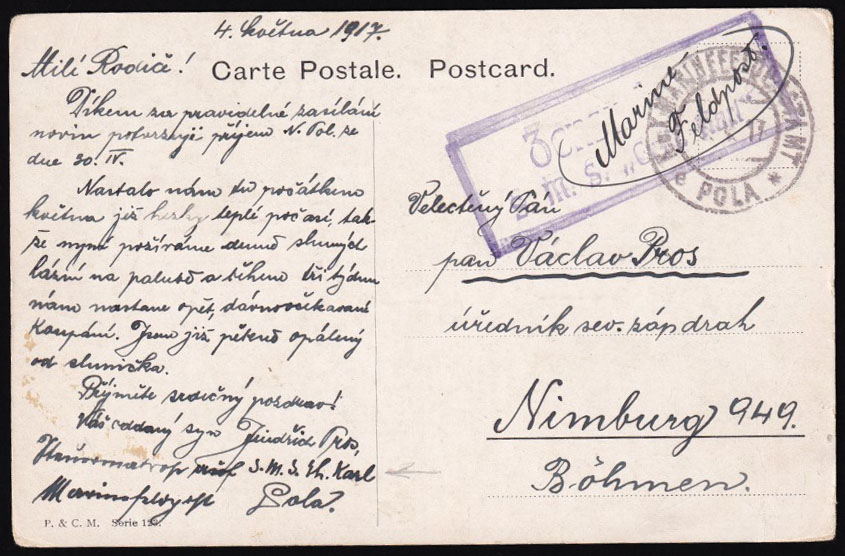 4. května 1917.
Milí Rodiče!
Carte Postale. Postcard.
Díkem za pravidelné zasílání
novin potvrzuji příjem N. Pol. ze
dne 30. IV.
Nastalo nám tu počátkem
května již hezky teplé počasí, tak-
že nyní požíváme denně slunných
lázní na palubě a během tří týdnů
nám nastane opět dávnoočekávané
koupání. Jsem již pěkně opálený
od sluníčka.
Přijměte srdečný pozdrav!
Váš oddaný syn Jindřich Pros,
auf S.M.S. Eh. Karl
Pola.
P. & C. M. Serie 12
Marine
Feldpost.
S. M. S.
17
e POLA *
Velectěný Pán
pan Václav Pros
úředník sev. záp drah
Nimburg 949.
Böhmen.